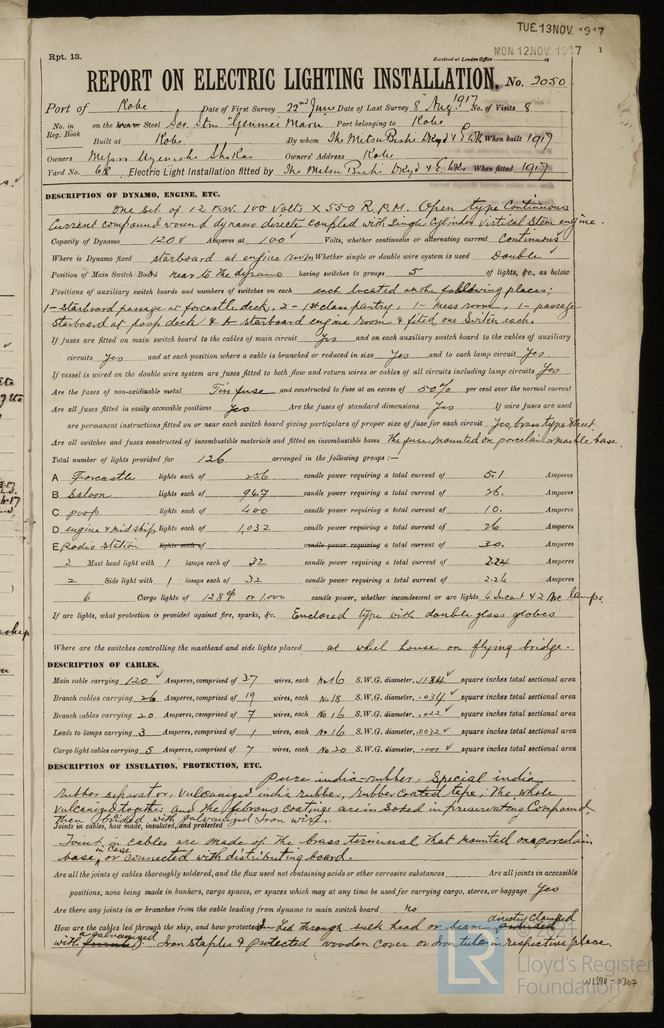 TUE. 13 NOV. 1917
MON. 12 NOV. 1917
Rpt. 13.
Received at London Office
REPORT ON ELECTRIC LIGHTING INSTALLATION. No. 2050
Port of Kobe Date of First Survey 22nd June Date of Last Survey 8 Aug 1917 No. of Visits 8
No. in Reg. Book on the Iron or Steel Port belonging to Kobe
Built at Kobe By whom The Mitsu Bishi Dkyd & E Wks When built 1917
Owners Messrs Owners' Address Kobe
Yard No. 68 Electric Light Installation fitted by The Mitsu Bishi Dkyd & E. Wks. When fitted 1917
DESCRIPTION OF DYNAMO, ENGINE, ETC.
One set of 12 KW. 100 Volts X 550 R.P.M. Open type Continuous
Current compound wound dynamo directe coupled with Single Cylinder Vertical Stem engine.
Capacity of Dynamo 120 Amperes at 100 Volts, whether continuous or alternating current Continuous
Where is Dynamo fixed starboard at engine room Whether single or double wire system is used Double
Position of Main Switch Board near to the dynamo having switches to groups 5 of lights, &c., as below
Positions of auxiliary switch boards and numbers of switches on each each located at the following places;
1 - Starboard passage at forcastle deck, 2 - 1st class pantry, 1 - mess room, 1 - passage
starboard at poop deck & A starboard engine room & fited one Switch each.
If fuses are fitted on main switch board to the cables of main circuit Yes and on each auxiliary switch board to the cables of auxiliary
circuits Yes and at each position where a cable is branched or reduced in size Yes and to each lamp circuit Yes
If vessel is wired on the double wire system are fuses fitted to both flow and return wires or cables of all circuits including lamp circuits Yes
Are the fuses of non-oxidizable metal Tin fuse and constructed to fuse at an excess of 50% per cent over the normal current
Are all fuses fitted in easily accessible positions Yes Are the fuses of standard dimensions Yes If wire fuses are used
are permanent instructions fitted on or near each switch board giving particulars of proper size of fuse for each circuit Yes, brass type sheet
Are all switches and fuses constructed of incombustible materials and fitted on incombustible bases The fuses mounted on porcelain or marble base.
Total number of lights provided for 126 arranged in the following groups :—
A Forcastle lights each of 256 candle power requiring a total current of 5.1 Amperes
B Saloon lights each of 967 candle power requiring a total current of 26. Amperes
C poop lights each of 400 candle power requiring a total current of 10. Amperes
D engine & mid ship lights each of 1,032 candle power requiring a total current of 26 Amperes
E Radio Station lights each of candle power requiring a total current of 30. Amperes
2 Mast head light with 1 lamps each of 32 candle power requiring a total current of 2.24 Amperes
2 Side light with 1 lamps each of 32 candle power requiring a total current of 2.24 Amperes
6 Cargo lights of 128cp or 1,000 candle power, whether incandescent or arc lights 4 Incat & 2 Arc lamps.
If arc lights, what protection is provided against fire, sparks, &c. Enclosed type with double glass globes
Where are the switches controlling the masthead and side lights placed at wheel house on flying bridge.
DESCRIPTION OF CABLES.
Main cable carrying 120 Amperes, comprised of 37 wires, each No 16 S.W.G. diameter, .1184 square inches total sectional area
Branch cables carrying 26 Amperes, comprised of 19 wires, each No 18 S.W.G. diameter, .034 square inches total sectional area
Branch cables carrying 20 Amperes, comprised of 7 wires, each No 16 S.W.G. diameter, .022 square inches total sectional area
Leads to lamps carrying 3 Amperes, comprised of 1 wires, each No 16 S.W.G. diameter, .0032 square inches total sectional area
Cargo light cables carrying 5 Amperes, comprised of 7 wires, each No 20 S.W.G. diameter, square inches total sectional area
DESCRIPTION OF INSULATION, PROTECTION, ETC.
Pure india-rubber, Special india
rubber separator, Vulcanized india rubber, rubber coated tape; The whole
vulcanized together and the febrous coatings are in Soked in preservating Compound.
Then braided with galvanized Iron wire.
Joints in cables, how made, insulated, and protected
Joint in cables are made of the brass terminal that mounted on a porcelain
base in case, or connected with distributing board.
Are all the joints of cables thoroughly soldered, and the flux used not containing acids or other corrosive substances Are all joints in accessible
positions, none being made in bunkers, cargo spaces, or spaces which may at any time be used for carrying cargo, stores, or baggage Yes
Are there any joints in or branches from the cable leading from dynamo to main switch board No
How are the cables led through the ship, and how protected Led through bulk head or beam directly Clamped
with a galvanized Iron staples & protected wooden cover or Iron tube in respective place.
© 2021
LR
Lloyd's Register
Foundation
W1590-0307